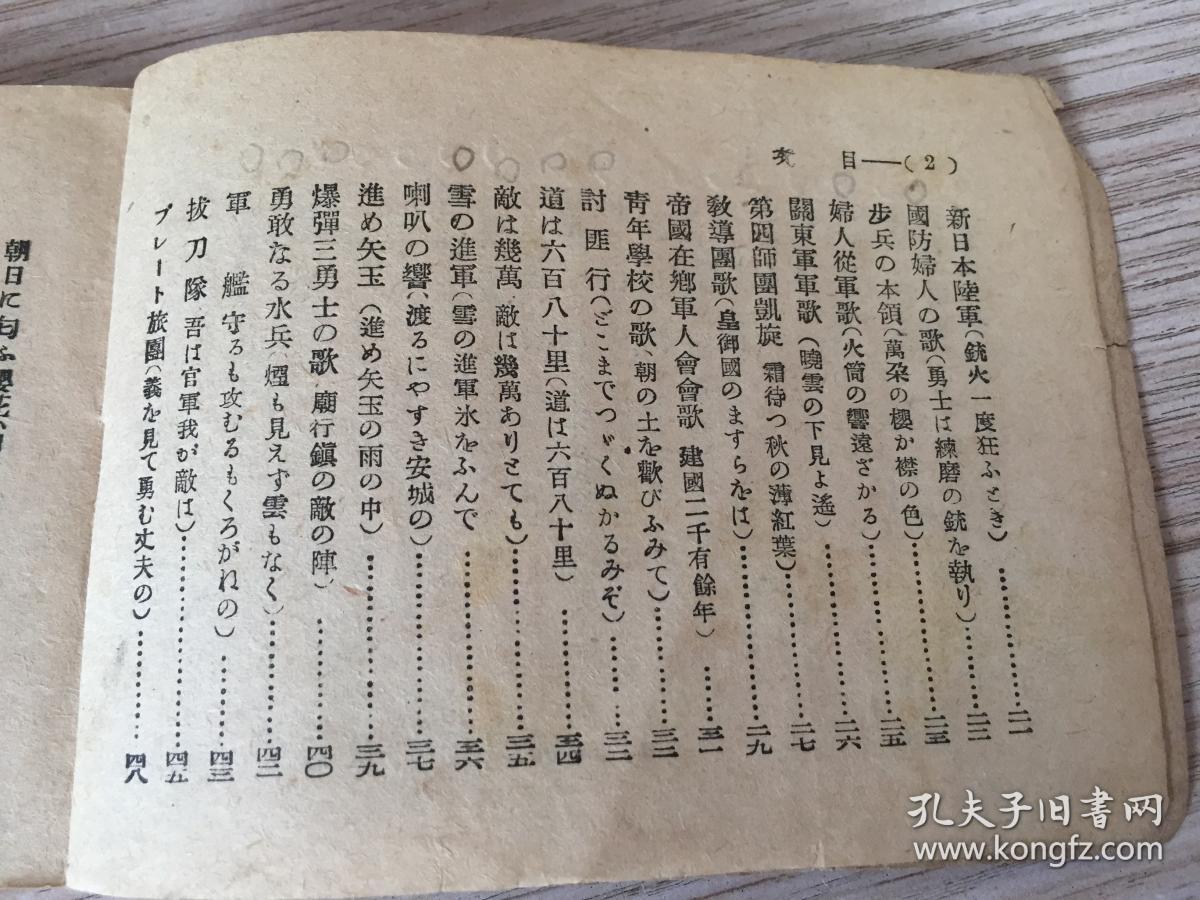 (2)—目次
新日本陸軍(銃火一度狂ふとき)……二一
國防婦人の歌(勇士は練磨の銃を執り)……二二
步兵の本領(萬朶の櫻か襟の色)……二三
婦人從軍歌(火筒の響遠ざかる)……二五
關東軍軍歌(曉雲の下見よ遙)……二六
第四師團凱旋 霜待つ秋の薄紅葉)……二七
敎導團歌(皇御國のますらをは)……二九
帝國在鄕軍人會會歌 建國二千有餘年)……三一
靑年學校の歌、朝の土を歡びふみて)……三二
討匪行(どこまでつゞくぬかるみぞ)……三三
道は六百八十里(道は六百八十里)……三四
敵は幾萬 敵は幾萬ありとても)……三五
雪の進軍(雪の進軍氷をふんで……三六
喇叭の響(渡るにやすき安城の)……三七
進め矢玉(進め矢玉の雨の中)……三九
爆彈三勇士の歌 廟行鎭の敵の陣)……四〇
勇敢なる水兵(煙も見えず雲もなく)……四二
軍艦 守るも攻むるもくろがねの)……四三
拔刀隊 吾は官軍我が敵は)……四五
ブレート旅團(義を見て勇む丈夫の)……四八
朝日に匂ふ櫻花
孔夫子旧书网
www.kongfz.com